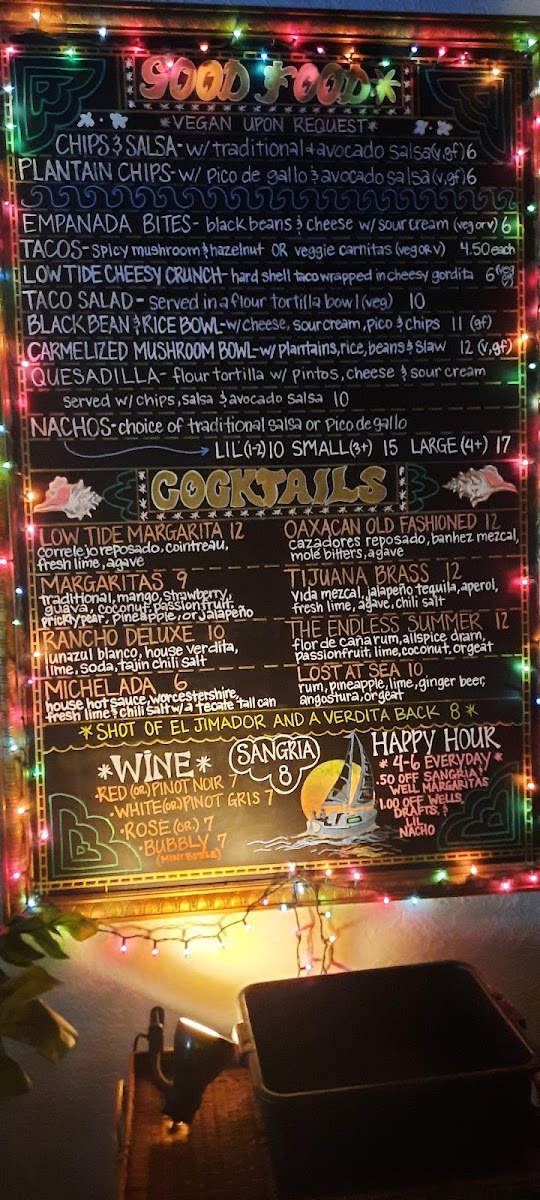 GOOD FOOD
*VEGAN UPON REQUEST*
CHIPS & SALSA- w/ traditional & avocado salsa (v,gf) 6
PLANTAIN CHIPS- w/ pico de gallo & avocado salsa (v,gf) 6
EMPANADA BITES- black beans & cheese w/ sour cream (veg or v) 6
TACOS- spicy mushroom & hazelnut OR veggie carnitas (veg or v) 4.50 each
LOW TIDE CHEESY CRUNCH- hard shell taco wrapped in cheesy gordita 6 (veg or v)
TACO SALAD- served in a flour tortilla bowl (veg) 10
BLACK BEAN & RICE BOWL- w/ cheese, sour cream, pico & chips 11 (gf)
CARMELIZED MUSHROOM BOWL- w/ plantains, rice, beans & slaw 12 (v,gf)
QUESADILLA- flour tortilla w/ pintos, cheese & sour cream
served w/ chips, salsa & avocado salsa 10
NACHOS- choice of traditional salsa or Pico de gallo
LIL' (1-2) 10 SMALL (3+) 15 LARGE (4+) 17
COCKTAILS
LOW TIDE MARGARITA 12
correlejo reposado, cointreau,
fresh lime, agave
MARGARITAS 9
traditional, mango, strawberry,
guava, coconut, passionfruit,
prickly pear, pineapple, or jalapeño
RANCHO DELUXE 10
lunazul blanco, house verdita,
lime, soda, tajin chili salt
MICHELADA 6
house hot sauce, worcestershire,
fresh lime & chili salt w/ a tecate tall can
OAXACAN OLD FASHIONED 12
cazadores reposado, banhez mezcal,
mole bitters, agave
TIJUANA BRASS 12
vida mezcal, jalapeño tequila, aperol,
fresh lime, agave, chili salt
THE ENDLESS SUMMER 12
flor de caña rum, allspice dram,
passionfruit, lime, coconut, orgeat
LOST AT SEA 10
rum, pineapple, lime, ginger beer,
angostura, orgeat
*SHOT OF EL JIMADOR AND A VERDITA BACK 8*
*WINE*
·RED (OR) PINOT NOIR 7
·WHITE (OR) PINOT GRIS 7
·ROSE (OR) 7
·BUBBLY 7
(MINI BOTTLE)
SANGRIA
8
HAPPY HOUR
* 4-6 EVERYDAY *
.50 OFF SANGRIA &
WELL MARGARITAS
1.00 OFF WELLS,
DRAFTS, &
LIL
NACHO